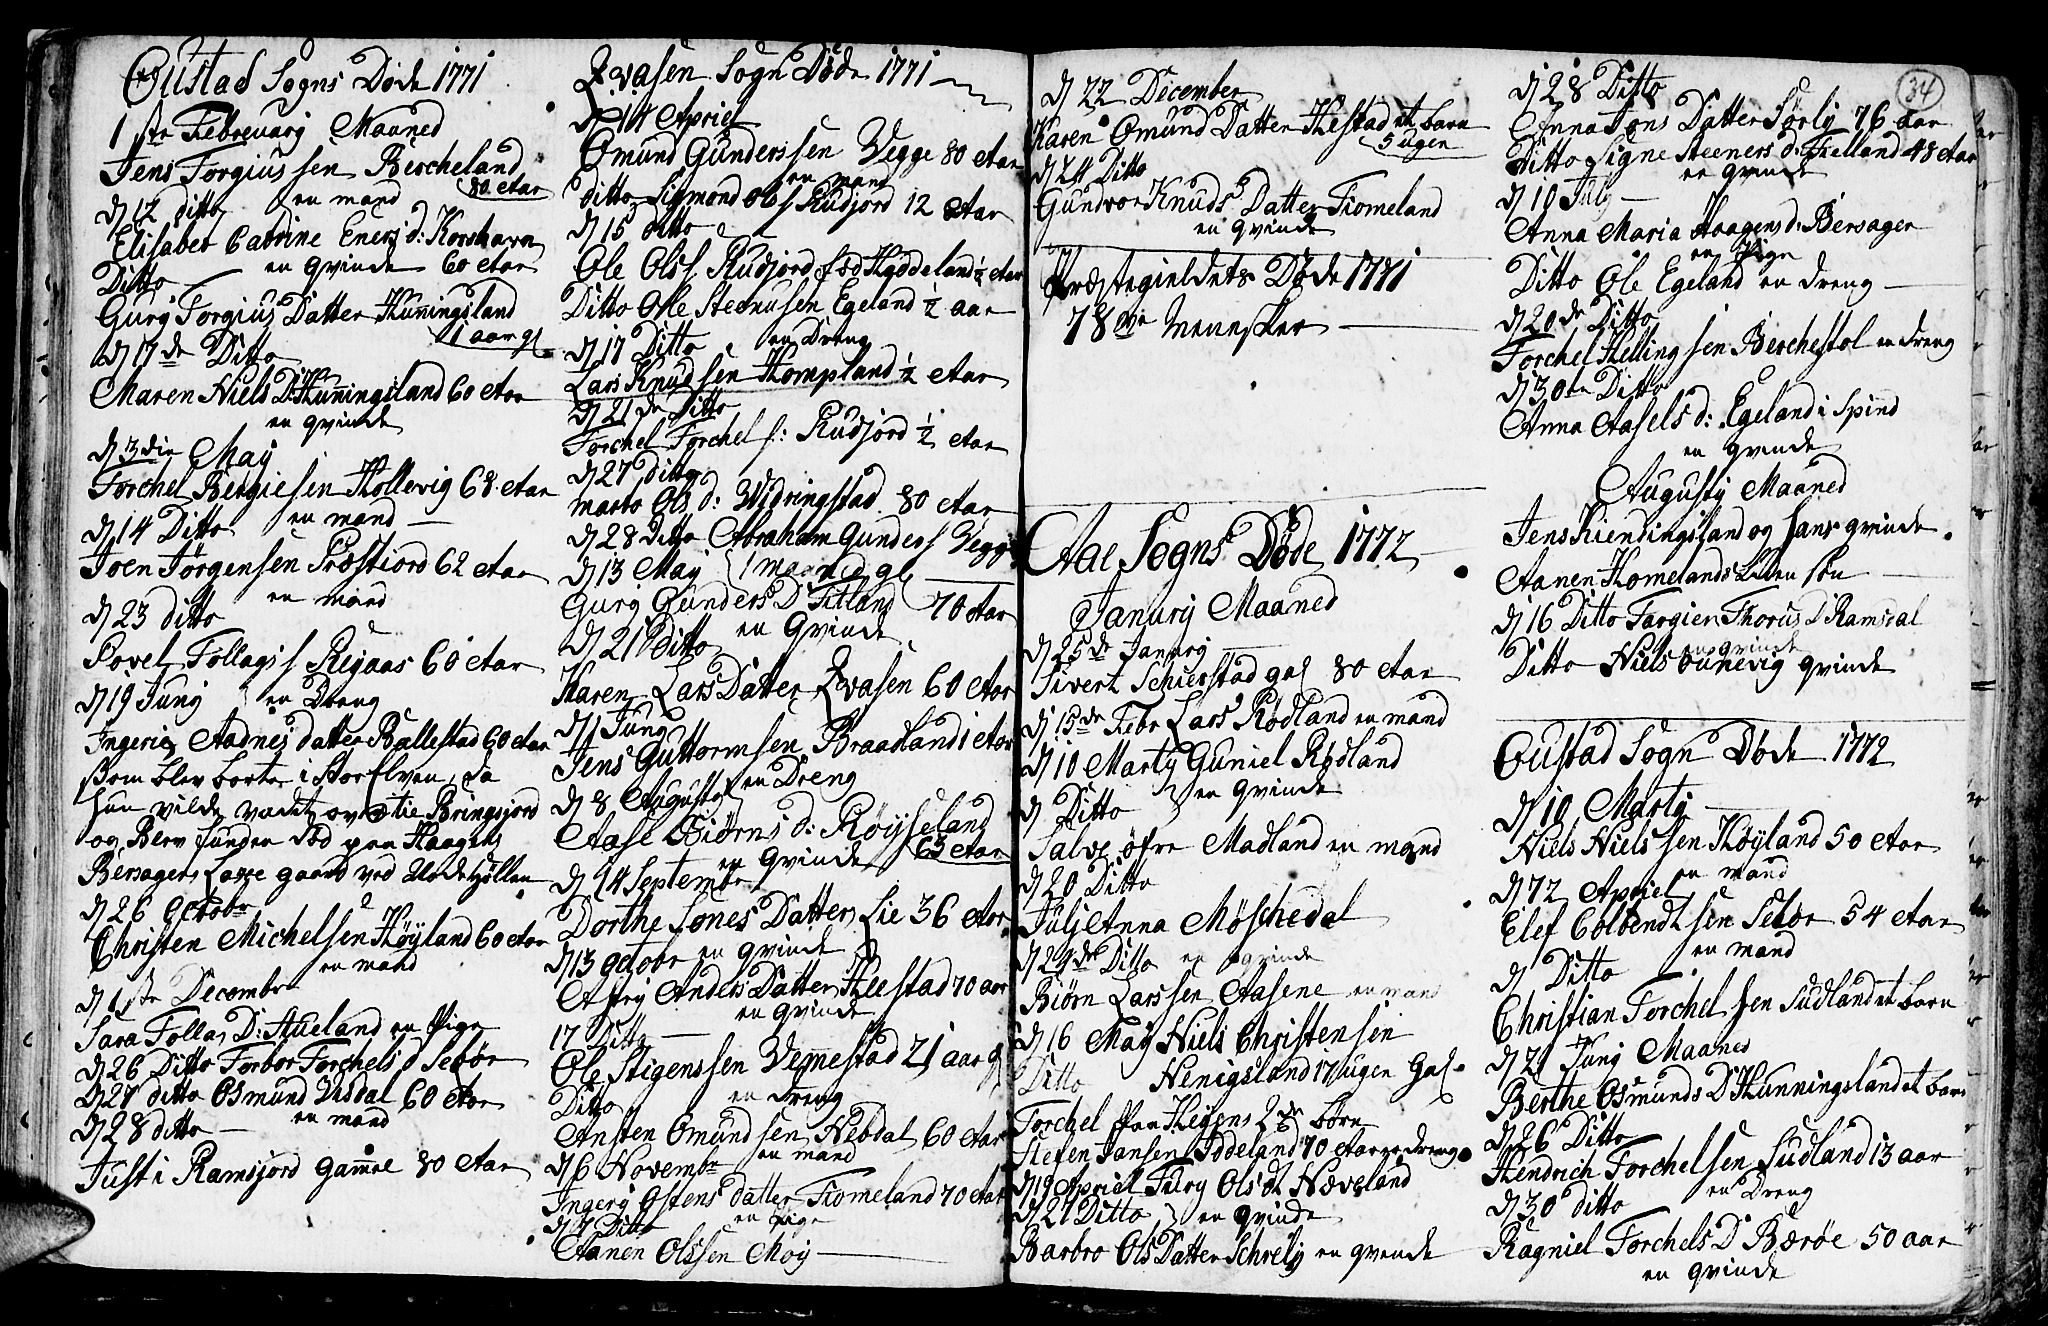 Oustad Sogns Døde 1771
1 ste Februarij Maaned
Jens Torgiussen Bercheland
en mand 80 Aar
D 12 ditto
Elisabet Catrine Eners d: Korshavn
en qvinde 60 Aar
Ditto
Gurj Torgius Datter Hunningsland
1 aar gl
D 17de Ditto
Maren Niels D: Hunningsland 60 Aar
en qvinde
D 3die Maij
Torchel Bergiesen Hollevig 68 Aar
D 14 Ditto en mand
Joen Jørgensen Præstiord 62 Aar
en mand
D 23 ditto
Povel Follagss Regaas 60 Aar
D 19 Junij en Dreng
Ingerie Aadnes datter Ballestad 60 Aar
som blev borte i Stor Elven, da
hun vilde vadet over tie Bringsjord
og Blev funden død paa Haagen
Bersagers Laxe gaard ved Hollen
D 26 octobr
Christen Michelsen Høyland 60 Aar
en mand
D 1ste Decembr
Sara Follas D: Stueland en Pige
D 26 Ditto Torbor Torchels d Sebør
D 27 ditto Osmund Udsdal 60 Aar
D 28 ditto en mand
Just i Ramsjord gamle 80 Aar
Qvasen Sogn Døde 1771
D 14 Apriel
Omund Gunderssen Vegge 80 Aar
en mand
ditto Sigmond Ols Rudjord 12 Aar
D 15 ditto
Ole Olss Rudjord fød Høddeland ½ Aar
Ditto Olle Steenusen Egeland ½ aar
D 17 Ditto en Dreng
Lars Knudsen Hompland ½ Aar
D 21de Ditto
Torchel Torchels: Rudjord ½ Aar
D 27 ditto
Marte Ols d: Widringstad 80 Aar
D 28 Ditto Abraham Gunders Vegge
D 13 Maij 1 maaned gl
Gurj Gunders D Fitland 70 Aar
D 21 ditto en Qvinde
Karen Lars Datter Qvasen 60 Aar
D 1 Junij
Jens Guttormsen Braadland 1 Aar
en Dreng
D 8 Augusty
Aase Biørns d: Røysseland
en Qvinde 65 Aar
D 14 Septembr
Dorthe Sønes Datter Lie 36 Aar
D 13 octobr en qvinde
Astrj Anders Datter Heestad 70 aar
en qvinde
17 Ditto
Ole Stigenssen Vemmestad 21 aar g
Ditto en dreng
Ansten Omundsen Nebdal 60 Aar
D 6 Novembr en mand
Ingerj Ostens datter Fiomeland 70 Aar
D 7 Ditto en pige
Aanen Olssen Moy
D 22 December
Karen Omund Datter Hestad et barn
5 ugen
D 24 Ditto
Gundvor Knuds Datter Fiomeland
en qvinde
Præstegieldets Døde 1771
78 ve Mennesker
Aae Sogns Døde 1772
Janurij Maaned
D 25de Janurij
Sivert Schierstad gal 80 Aar
D 15de Febr Lars Rødland en mand
D 10 Marty Guniel Rødland
en qvinde
D Ditto
Salve øfre Madland en mand
D 20 Ditto
Julj Anna Møschedal
D 24de Ditto en qvinde
Biørn Larssen Aasene en mand
D 16 Maij Niels Christensen
Ditto Henigsland 17 ugen Gal.
Torchel paa Heyens 2de børn
Stefen Jansen Foedeland 70 Aar en dreng
D 19 Apriel Turj Ols dt Næveland
D 21 Ditto en qvinde
Barbro Ols Datter Schrelj en qvende
34
D 28 Ditto
Anna Jons Datter Sørly 76 aar
Ditto Signe Steeners d: Frelland 48 Aar
en qvinde
D 10 July
Anna Maria Haagens d: Bersager
en Pige
Ditto Ole Egeland en dreng
D 20de Ditto
Torchel Hellingsen Berchestol en dreng
D 30te Ditto
Anna Aasels d: Egeland i Spind
en qvende
Augusty Maaned
Jens Hienningsland og hans qvinde
Aanen Homelands liden søn
D 16 Ditto Targier Thorus D Ramsdal
en qvinde
Ditto Niels Ounevig qvinde
Oustad Sogn Døde 1772
D 10 Marty
Niels Nielssen Høyland 50 Aar
D 72 Apriel en mand
Elef Colbendtsen Sebør 54 Aar
en mand
D Ditto
Christian Torchelsen Sudland et barn
D 21 Junij Maaned
Berthe Osmunds D Hunningsland et barn
D 26 Ditto
Hendrich Torchelsen Sudland 13 aar
en Dreng
D 30 ditto
Ragniel Torchels D Bærøe 50 aar
en qvinde